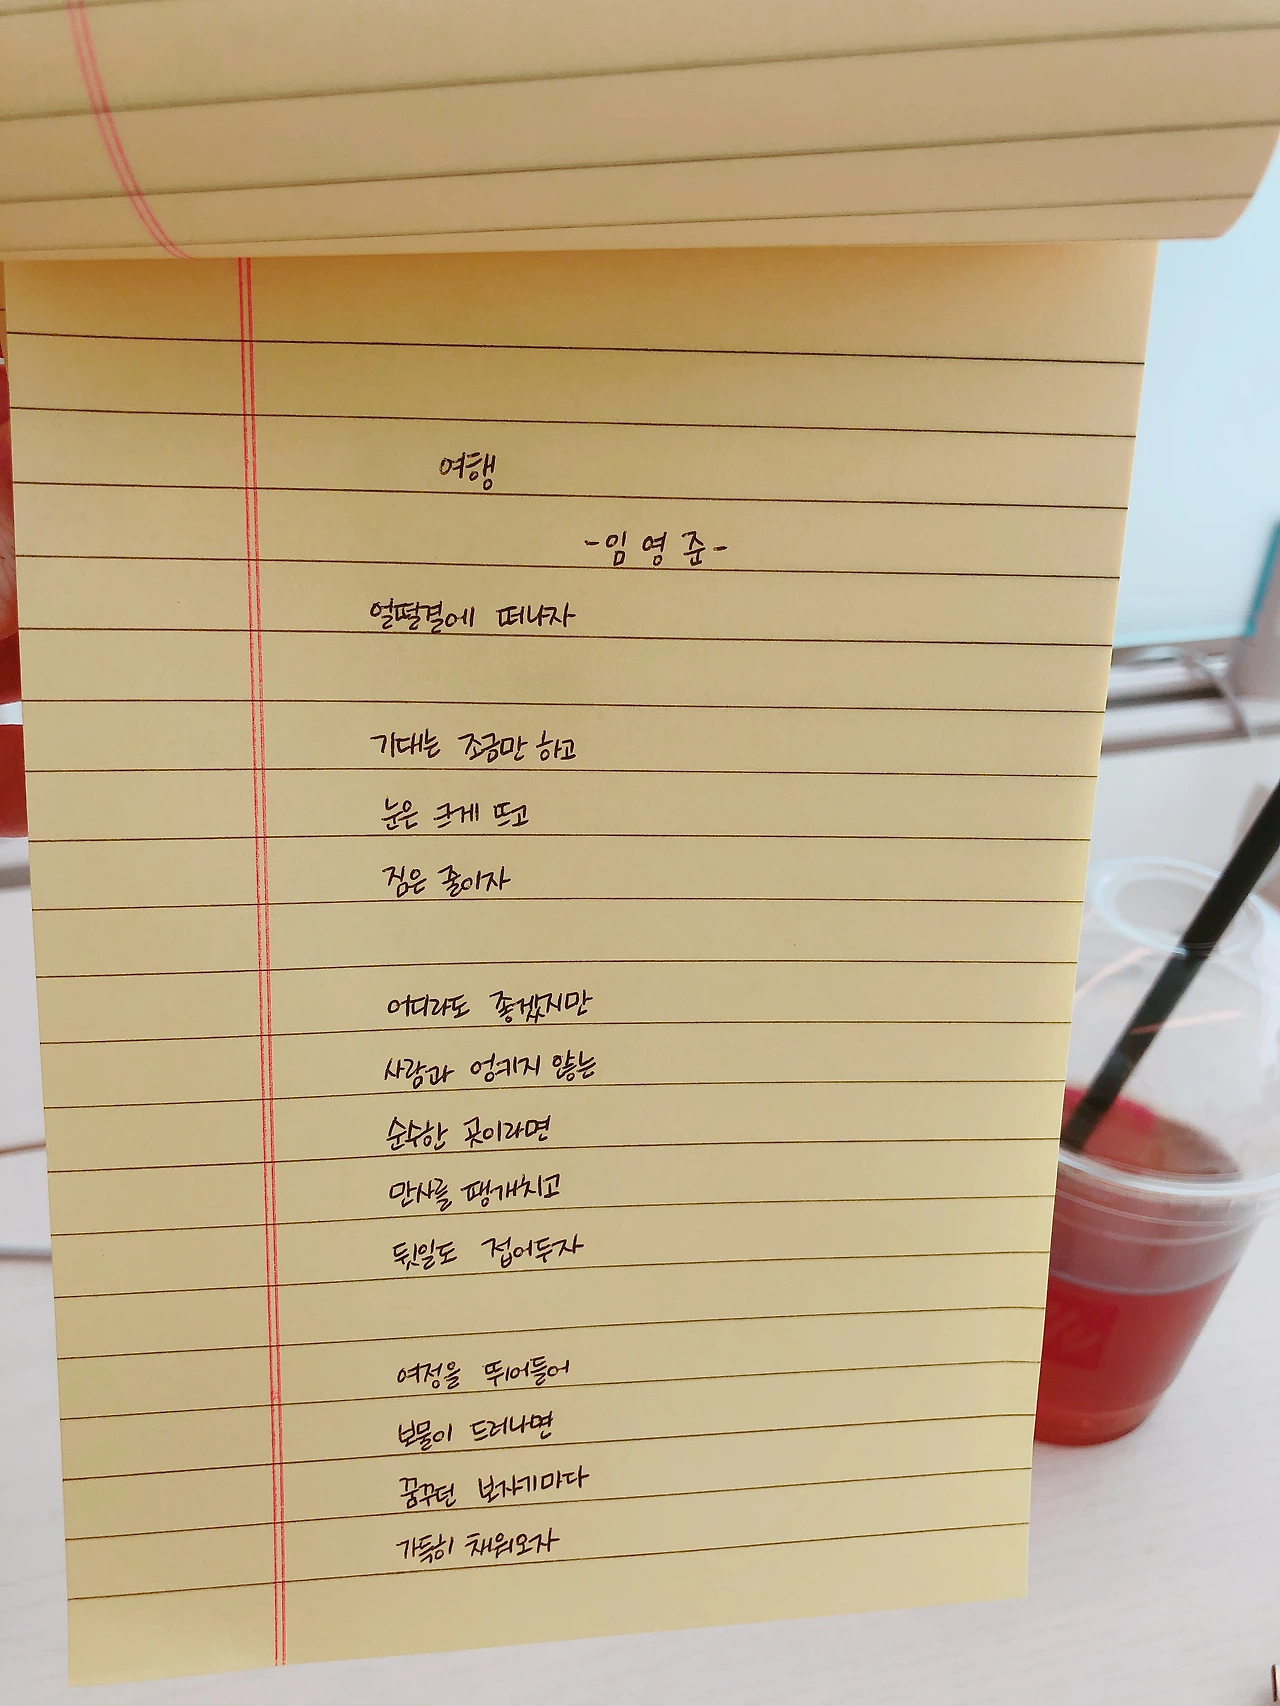 여행
-임영준-
얼떨결에 떠나자
기대는 조금만 하고
눈은 크게 뜨고
짐은 줄이자
어디라도 좋겠지만
사람과 엉키지 않는
순수한 곳이라면
만사를 팽개치고
뒷일도 접어두자
여정을 뛰어들어
보물이 드러나면
꿈꾸던 보자기마다
가득히 채워오자